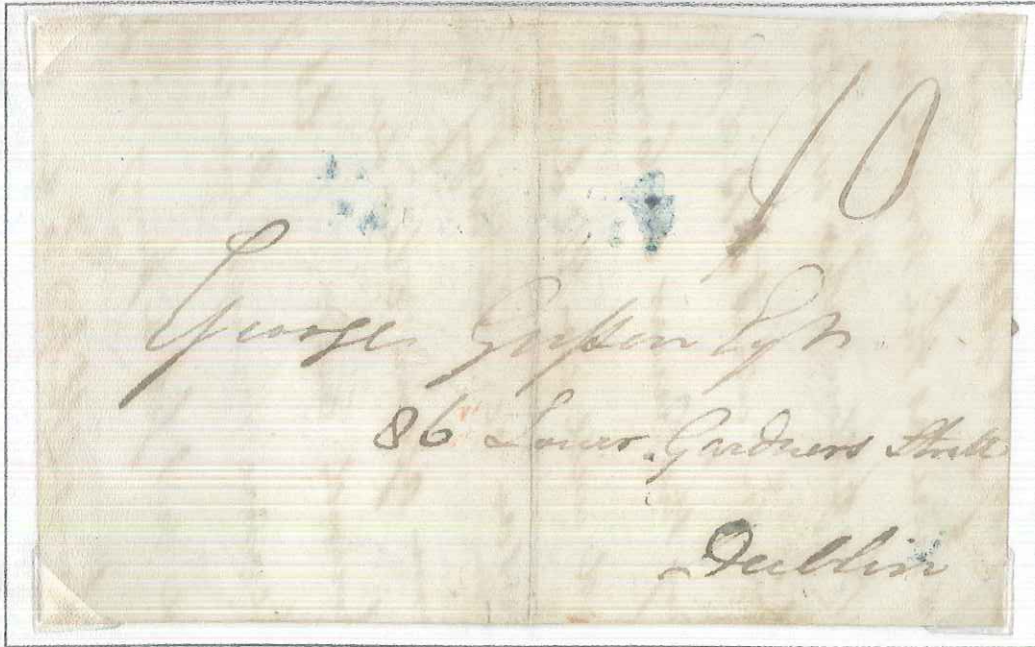 10
George Griffin Esqr
86 Lower Gardners Street
Dublin